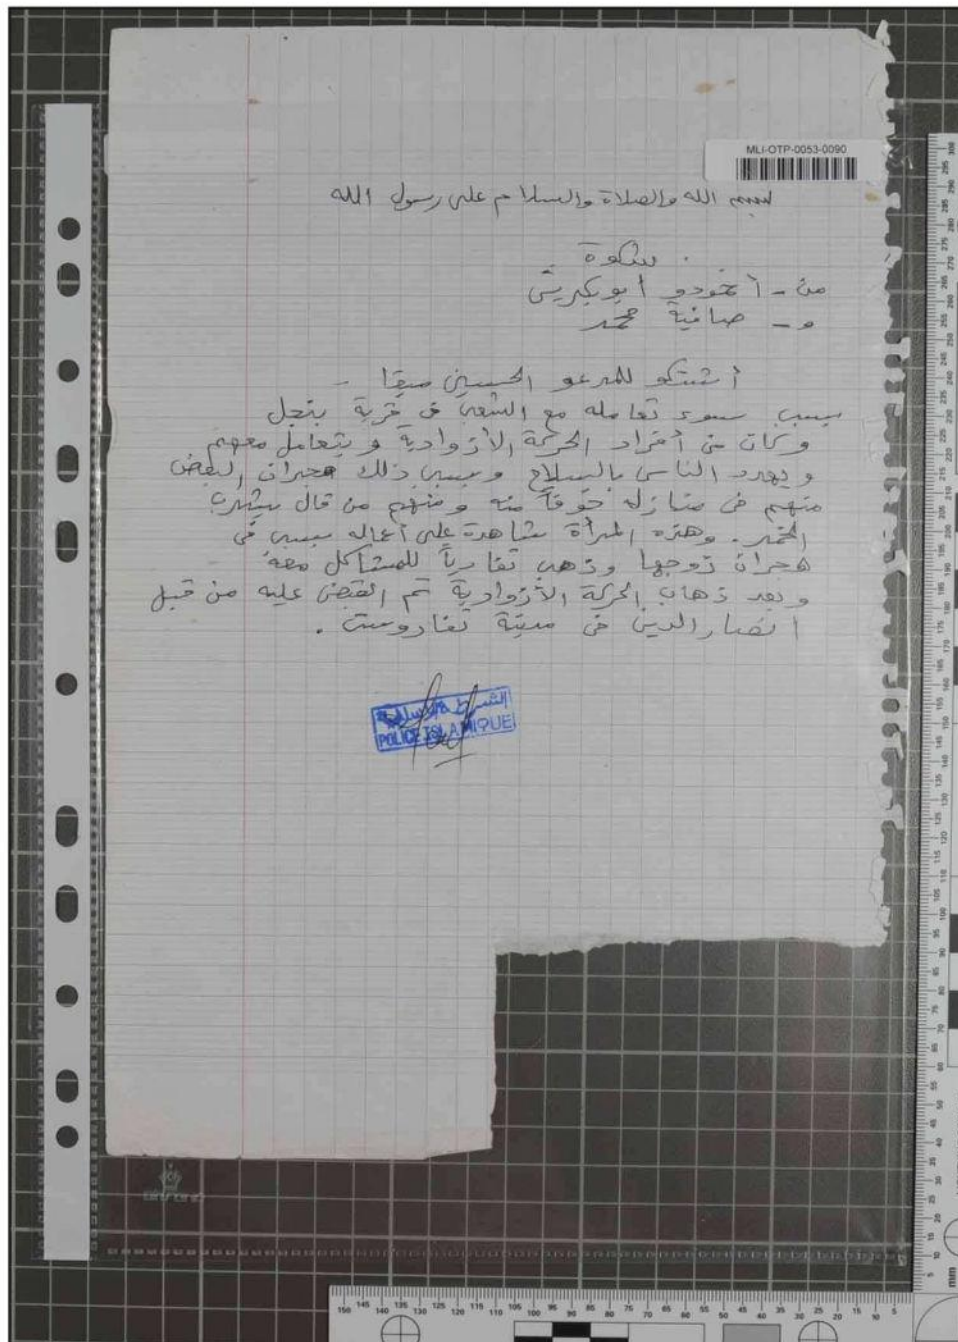 MLI-OTP-0053-0090
بسم الله والصلاة والسلام على رسول الله
شكوة
من - أنحودو أبو بكريش
و - صافية محمد
أشتكو للمدعو الحسين ميقا -
بسبب سوء تعامله مع الشعب في قرية بنجل
وكان من أفراد الحركة الأزوادية ويتعامل معهم
ويهدد الناس بالسلاح وبسبب ذلك هجران البعض
منهم من منازله خوفاً منه ومنهم من قال يشرب
الخمر. وهذه المرأة شاهدة على أعماله بسبب في
هجران زوجها وذهب تفادياً للمشاكل معه
وبعد ذهاب الحركة الأزوادية تم القبض عليه من قبل
انصار الدين في مدينة تغاروست .
الشرطة الإسلامية
POLICE ISLAMIQUE